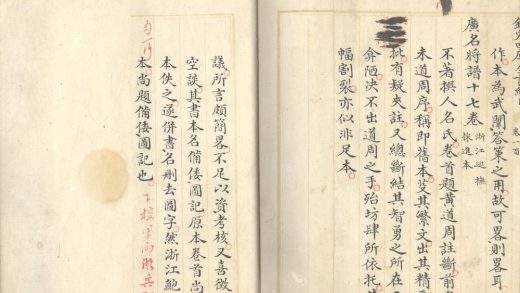 作本為武闈答策之用故可畧則畧耳
廣名將譜十七卷 浙江巡撫
採進本
不著撰人名氏卷首題黄道周註斷前
未道周序稱即舊本芟其繁文出其精
批有疑夾註又總斷結其智勇之所在
弇陋决不出道周之手殆坊肆所依托
幅割裂亦似非足本
議所言頗簡畧不足以資考核又喜徴
空談其書本名備倭圖記原本卷首尚
本佚之遂併書名刪去圖字然浙江鮑
本尚題備倭圖記也